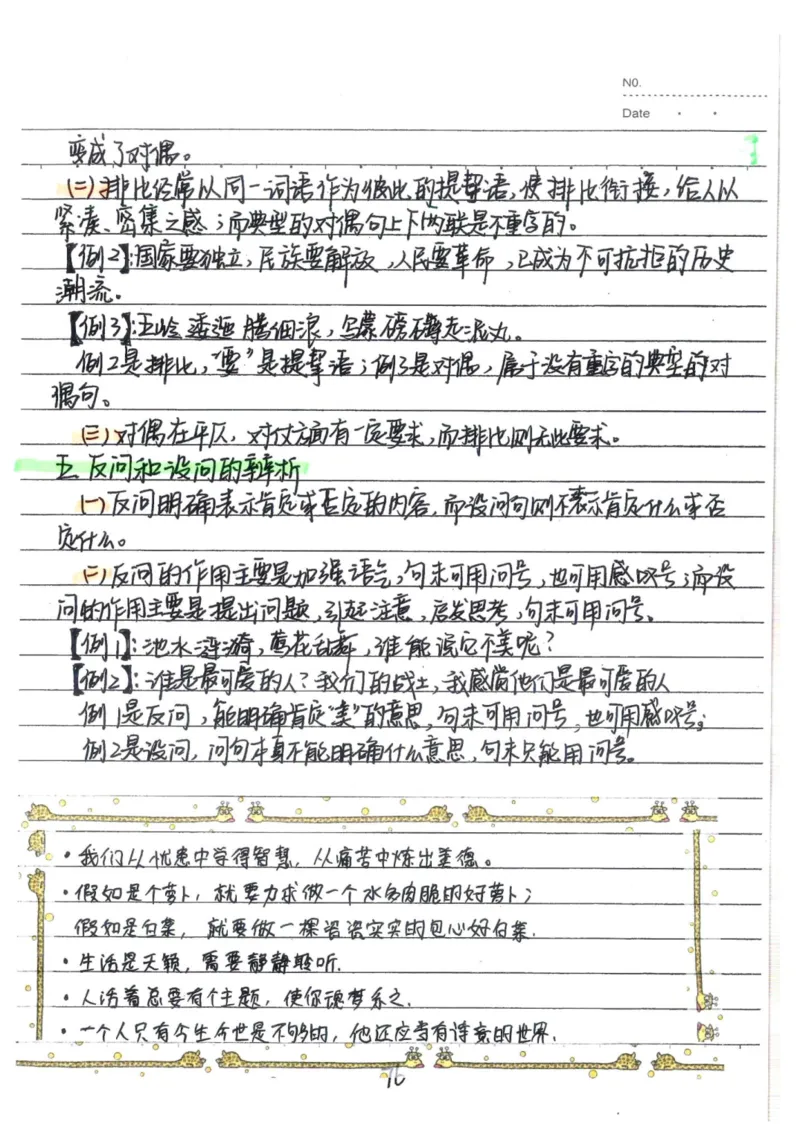 NO.
Date
变成了对偶。
(二)排比经常以同一词语作为彼此的提挈语,使排比衔接,给人以
紧凑、密集之感;而典型的对偶句上下两联是不重字的。
【例2】:国家要独立,民族要解放,人民要革命,已成为不可抗拒的历史
潮流。
【例3】:五岭逶迤腾细浪,乌蒙磅礴走泥丸。
例2是排比,“要”是提挈语;例3是对偶,属于没有重字的典型的对
偶句。
(三)对偶在平仄,对仗方面有一定要求,而排比则无此要求。
五.反问和设问的辨析
(一)反问明确表示肯定或否定的内容,而设问句则不表示肯定什么或否
定什么。
(二)反问的作用主要是加强语气,句末可用问号,也可用感叹号;而设
问的作用主要是提出问题,引起注意,启发思考,句末可用问号。
【例1】:池水涟漪,莺花乱舞,谁能说它不美呢?
【例2】:谁是最可爱的人?我们的战士,我感觉他们是最可爱的人
例1是反问,能明确肯定“美”的意思,句末可用问号,也可用感叹号;
例2是设问,问句本身不能明确什么意思,句末只能用问号。
·我们从忧患中学得智慧,从痛苦中炼出美德。
·假如是个萝卜,就要力求做一个水多肉脆的好萝卜;
假如是白菜,就要做一棵瓷瓷实实的包心好白菜.
·生活是天籁,需要静静聆听.
·人活着总要有个主题,使你魂梦系之.
·一个人只有今生今世是不够的,他还应当有诗意的世界.
76